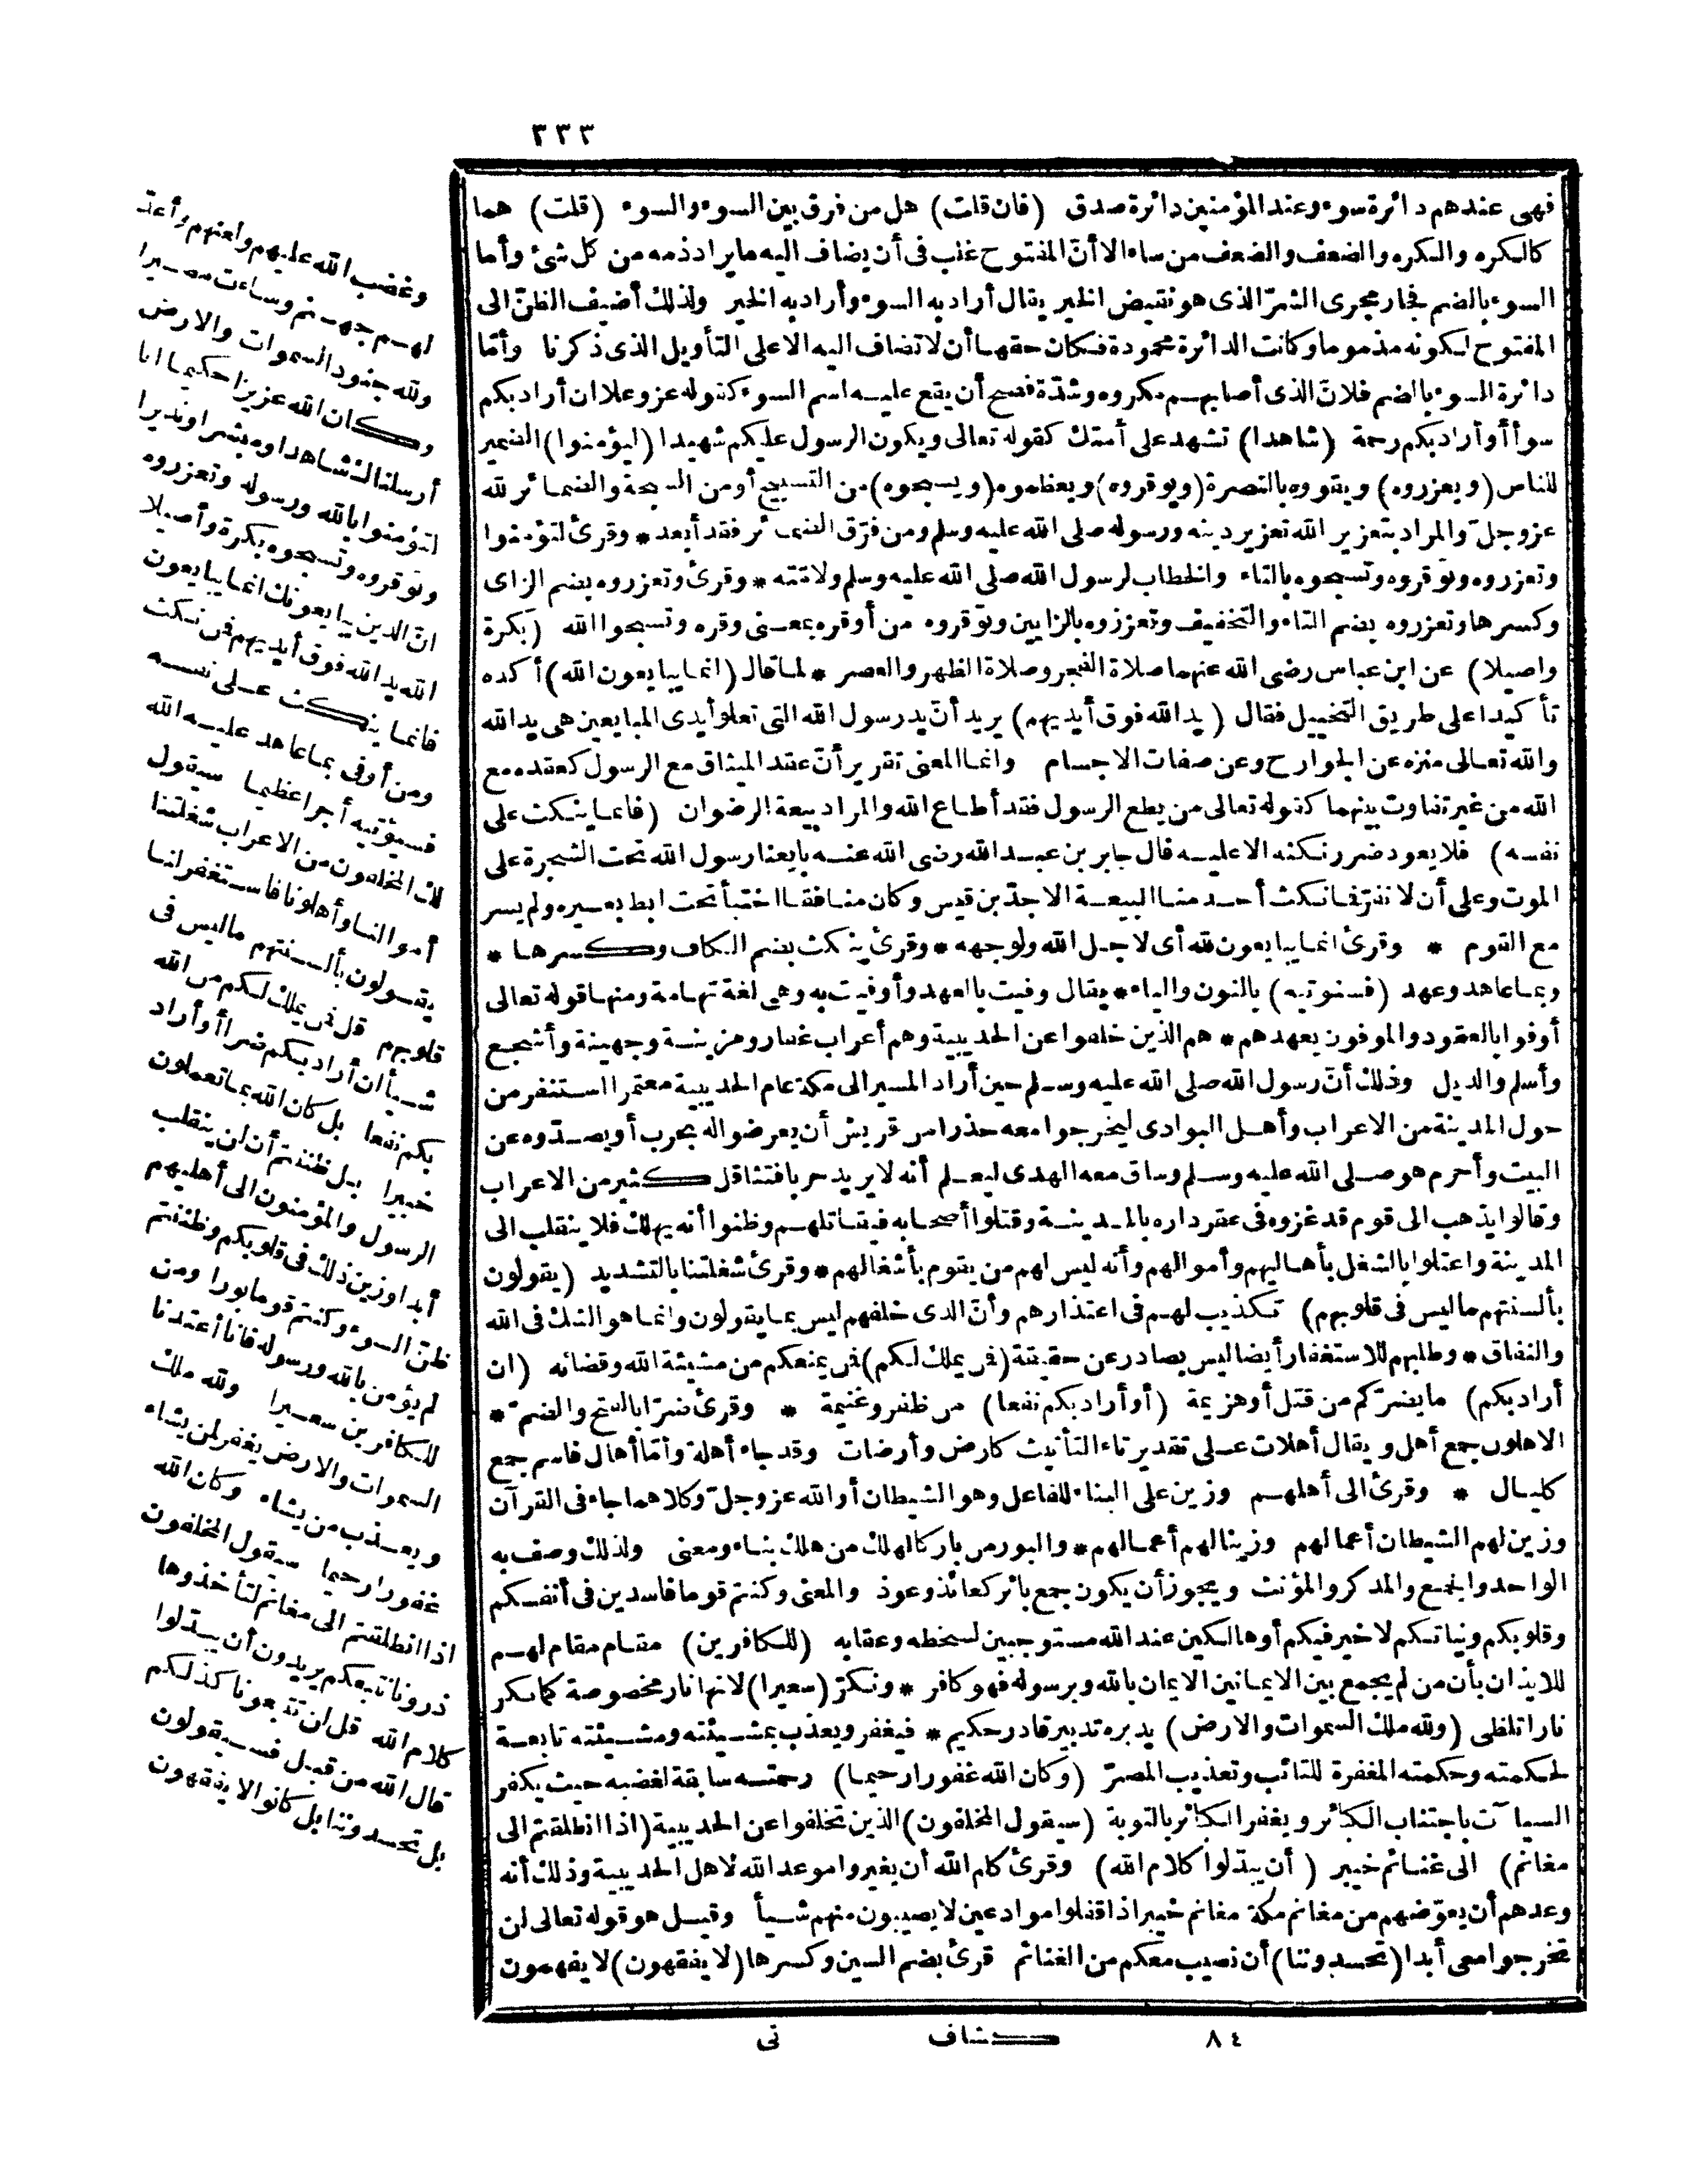 ٣٣٣
فهى عندهم دائرة سوء وعند المؤمنين دائرة صدق (فان قلت) هل من فرق بين السوء والسوء (قلت) هما
كالكره والكره والضعف والضعف من ساء الا أنّ المفتوح غلب فى أن يضاف اليه ما يراد ذمه من كل شئ وأما
السوء بالضم فجار مجرى الشرّ الذى هو نقيض الخير يقال أراد به السوء وأراد به الخير ولذلك أضيف الظنّ الى
المفتوح لكونه مذموما وكانت الدائرة محمودة فكان حقها أن لا تضاف اليه الا على التأويل الذى ذكرنا وأمّا
دائرة السوء بالضم فلانّ الذى أصابهم مكروه وشدّة فصح أن يقع عليه اسم السوء كقوله عز وعلا ان أراد بكم
سوأ أو أراد بكم رحمة (شاهدا) تشهد على أمتك كقوله تعالى ويكون الرسول عليكم شهيدا (ليؤمنوا) الضمير
للناس (ويعزروه) ويقووه بالنصرة (ويوقروه) ويعظموه (ويسبحوه) من التسبيح أو من السبحة والضمائر لله
عزوجلّ والمراد بتعزير الله تعزير دينه ورسوله صلى الله عليه وسلم ومن فرّق الضمائر فقد أبعد * وقرئ لتؤمنوا
وتعزروه وتوقروه وتسبحوه بالتاء والخطاب لرسول الله صلى الله عليه وسلم ولامّته * وقرئ وتعزروه بضم الزاى
وكسرها وتعزروه بضم التاء والتخفيف وتعززوه بالزايين وتوقروه من أوقره بمعنى وقره وتسبحوا الله (بكرة
واصيلا) عن ابن عباس رضى الله عنهما صلاة الفجر وصلاة الظهر والعصر * لما قال (انما يبايعون الله) أكده
تأكيدا على طريق التخييل فقال (يد الله فوق أيديهم) يريد أنّ يد رسول الله التى تعلو أيدى المبايعين هى يد الله
والله تعالى منزه عن الجوارح وعن صفات الاجسام وانما المعنى تقرير أنّ عقد الميثاق مع الرسول كعقده مع
الله من غير تفاوت بينهما كقوله تعالى من يطع الرسول فقد أطاع الله والمراد بيعة الرضوان (فانما ينكث على
نفسه) فلا يعود ضرر نكثه الا عليه قال جابر بن عبد الله رضى الله عنه بايعنا رسول الله تحت الشجرة على
الموت وعلى أن لا نفرّ فما نكث أحد منا البيعة الا جدّ بن قيس وكان منافقا اختبأ تحت ابط بعيره ولم يسر
مع القوم * وقرئ انما يبايعون لله أى لاجل الله ولوجهه * وقرئ ينكث بضم الكاف وكسرها *
وبما عاهد وعهد (فسنوتيه) بالنون والياء * يقال وفيت بالعهد وأوفيت به وهى لغة تهامة ومنها قوله تعالى
أوفوا بالعقود والموفون بعهدهم * هم الذين خلفوا عن الحديبية وهم أعراب غفار ومزينة وجهينة وأشجع
وأسلم والديل وذلك أنّ رسول الله صلى الله عليه وسلم حين أراد المسير الى مكة عام الحديبية معتمرا استنفر من
حول المدينة من الاعراب وأهل البوادى ليخرجوا معه حذرا من قريش أن يعرضوا له بحرب أو يصدّوه عن
البيت وأحرم هو صلى الله عليه وسلم وساق معه الهدى ليعلم أنه لا يريد حربا فتثاقل كثير من الاعراب
وقالوا يذهب الى قوم قد غزوه فى عقر داره بالمدينة وقتلوا أصحابه فيقاتلهم وظنوا أنه يهلك فلا ينقلب الى
المدينة واعتلوا بالشغل بأهاليهم وأموالهم وأنه ليس لهم من يقوم بأشغالهم * وقرئ شغلتنا بالتشديد (يقولون
بألسنتهم ما ليس فى قلوبهم) تكذيب لهم فى اعتذارهم وأنّ الذى خلفهم ليس بما يقولون وانما هو الشك فى الله
والنفاق * وطلبهم للاستغفار أيضا ليس بصادر عن حقيقة (فمن يملك لكم) فمن يمنعكم من مشيئة الله وقضائه (ان
أراد بكم) ما يضرّكم من قتل أو هزيمة (أو أراد بكم نفعا) من ظفر وغنيمة * وقرئ ضرّا بالفتح والضمّ *
الاهلون جمع أهل ويقال أهلات على تقدير تاء التأنيث كارض وأرضات وقد جاء أهلة وأمّا أهال فاسم جمع
كليال * وقرئ الى أهلهم وزين على البناء للفاعل وهو الشيطان أو الله عز وجلّ وكلاهما جاء فى القرآن
وزين لهم الشيطان أعمالهم وزينا لهم أعمالهم * والبور من بار كالهلك من هلك بناء ومعنى ولذلك وصف به
الواحد والجمع والمذكر والمؤنث ويجوز أن يكون جمع بائر كعائذ وعوذ والمعنى وكنتم قوما فاسدين فى أنفسكم
وقلوبكم ونياتكم لا خير فيكم أو هالكين عند الله مستوجبين لسخطه وعقابه (للكافرين) مقام مقام لهم
للايذان بأن من لم يجمع بين الايمانين الايمان بالله وبرسوله فهو كافر * ونكرّ (سعيرا) لانها نار مخصوصة كما نكر
نارا تلظى (ولله ملك السموات والارض) يدبره تدبير قادر حكيم * فيغفر ويعذب بمشيئته ومشيئته تابعة
لحكمته وحكمته المغفرة للتائب وتعذيب المصرّ (وكان الله غفورا رحيما) رحمته سابقة لغضبه حيث يكفر
السيآت باجتناب الكبائر ويغفر الكبائر بالتوبة (سيقول المخلفون) الذين تخلفوا عن الحديبية (اذا انطلقتم الى
مغانم) الى غنائم خيبر (أن يبدّلوا كلام الله) وقرئ كلم الله أن يغيروا موعد الله لاهل الحديبية وذلك أنه
وعدهم أن يعوّضهم من مغانم مكة مغانم خيبر اذا قفلوا موادعين لا يصيبون منهم شيأ وقيل هو قوله تعالى لن
تخرجوا معى أبدا (تحسدوننا) أن نصيب معكم من الغنائم قرئ بضم السين وكسرها (لا يفقهون) لا يفهمون
وغضب الله عليهم ولعنهم وأعدّ
لهم جهنم وساءت مصيرا
ولله جنود السموات والارض
وكان الله عزيزا حكيما انا
أرسلناك شاهدا ومبشرا ونذيرا
لتؤمنوا بالله ورسوله وتعزروه
وتوقروه وتسبحوه بكرة وأصيلا
انّ الذين يبايعونك انما يبايعون
الله يد الله فوق أيديهم فمن نكث
فانما ينكث على نفسه
ومن أوفى بما عاهد عليه الله
فسيؤتيه أجرا عظيما سيقول
لك المخلفون من الاعراب شغلتنا
أموالنا وأهلونا فاستغفر لنا
يقولون بألسنتهم ما ليس فى
قلوبهم قل فمن يملك لكم من الله
شيأ ان أراد بكم ضرا أو أراد
بكم نفعا بل كان الله بما تعملون
خبيرا بل ظننتم أن لن ينقلب
الرسول والمؤمنون الى أهليهم
أبدا وزين ذلك فى قلوبكم وظننتم
ظنّ السوء وكنتم قوما بورا ومن
لم يؤمن بالله ورسوله فانا أعتدنا
للكافرين سعيرا ولله ملك
السموات والارض يغفر لمن يشاء
ويعذب من يشاء وكان الله
غفورا رحيما سيقول المخلفون
اذا انطلقتم الى مغانم لتأخذوها
ذرونا نتبعكم يريدون أن يبدّلوا
كلام الله قل لن تتبعونا كذلكم
قال الله من قبل فسيقولون
بل تحسدوننا بل كانوا لا يفقهون
٨٤ كشاف نى